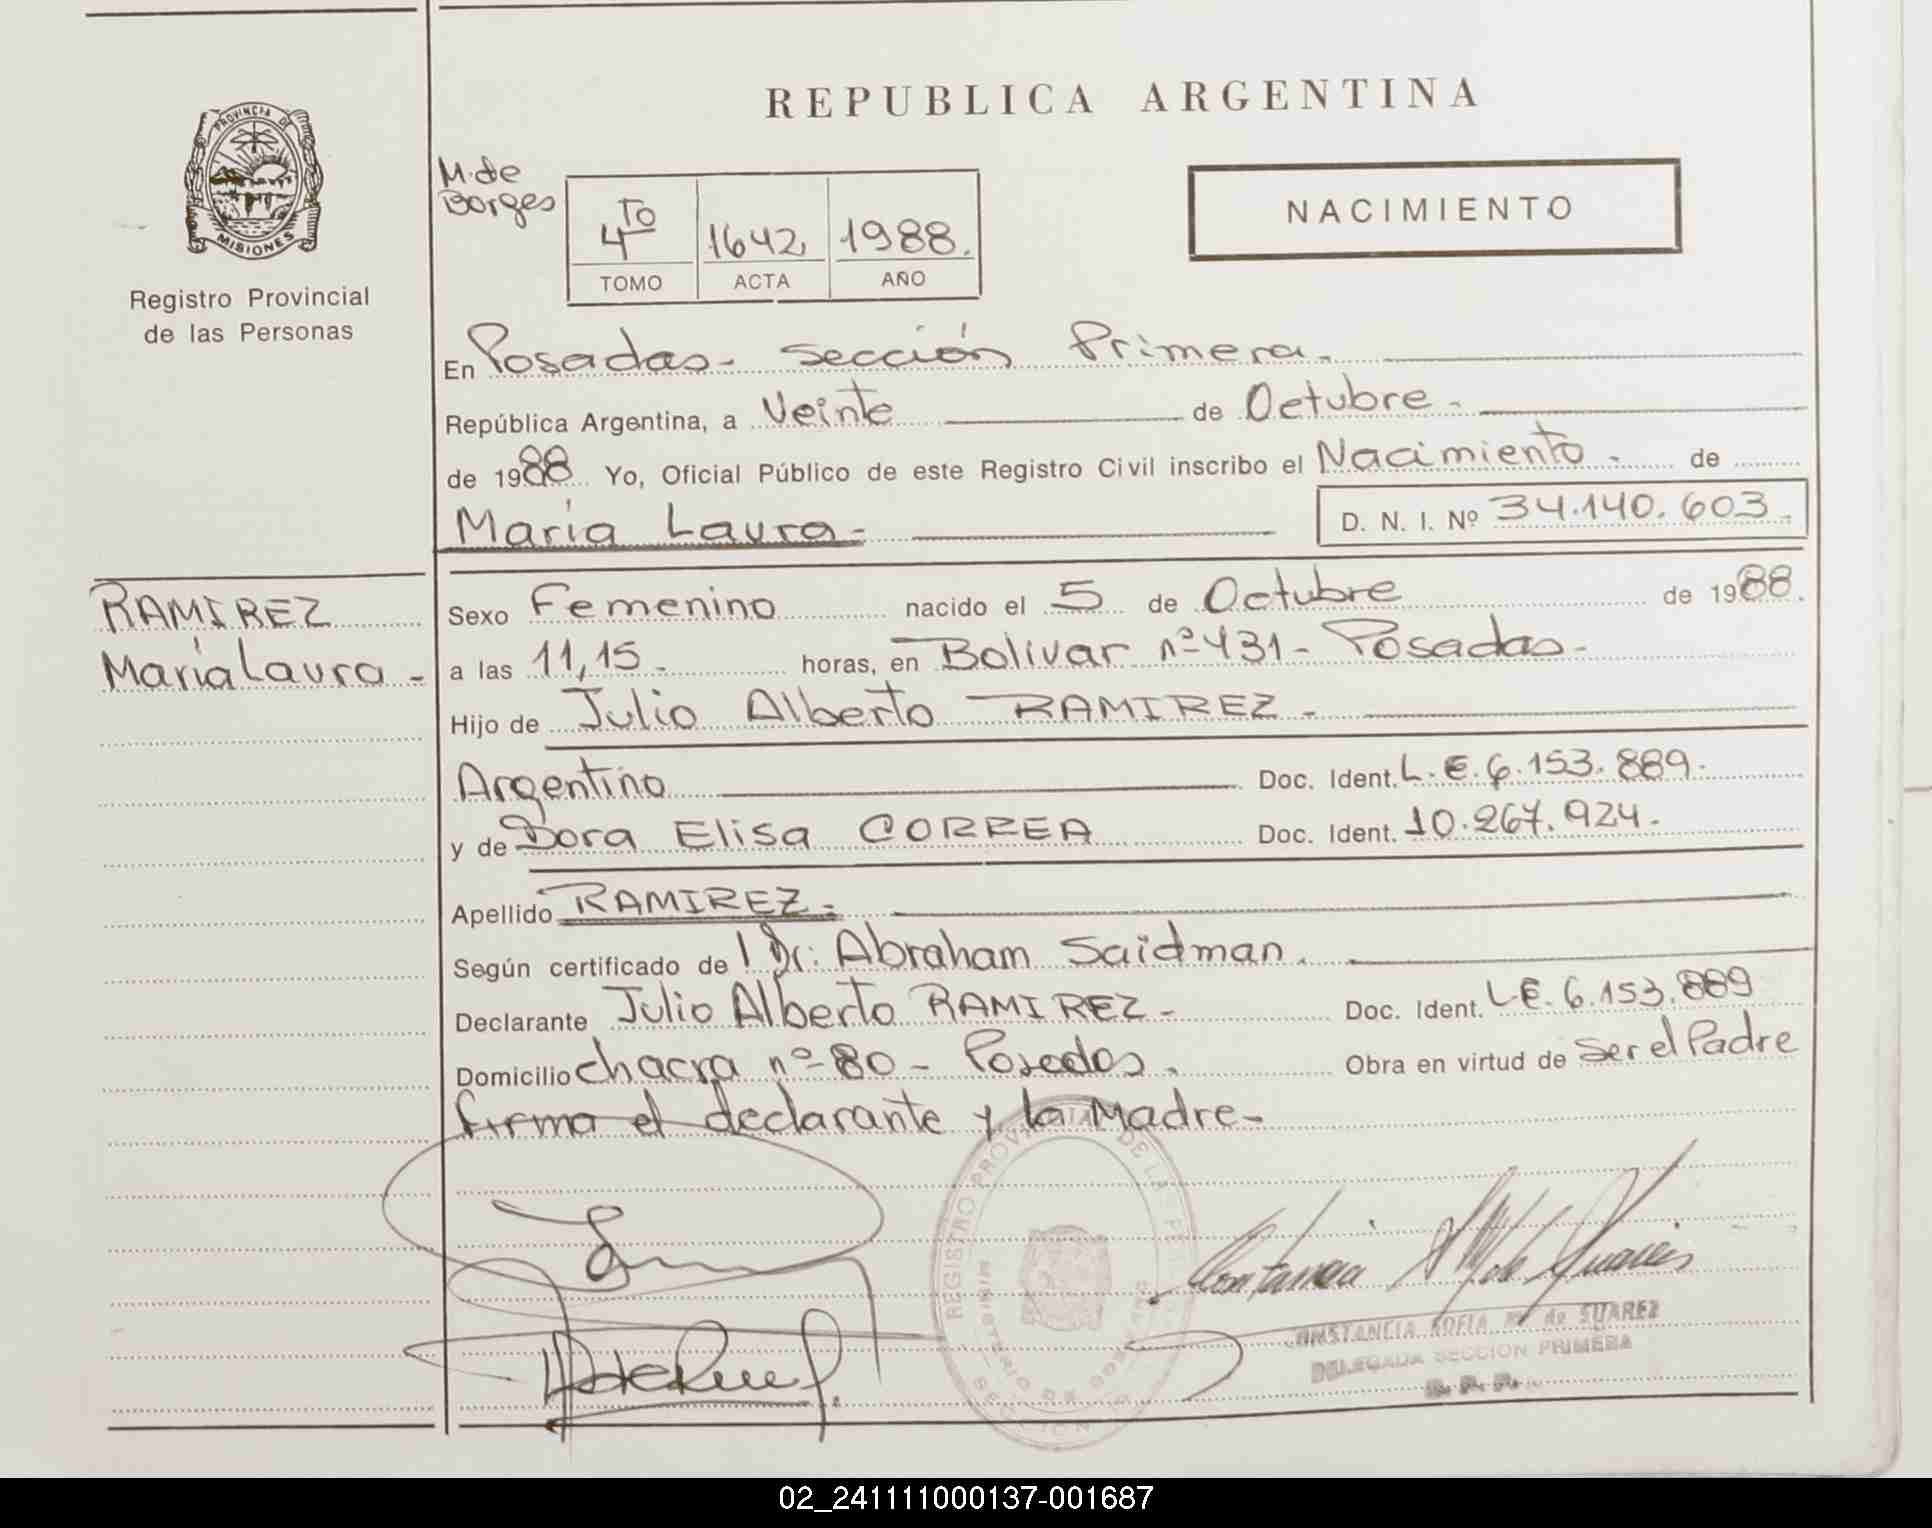 REPUBLICA ARGENTINA
PROVINCIA DE
MISIONES
Registro Provincial
de las Personas
M. de
Borges
4to 1642 1988.
TOMO ACTA AÑO
NACIMIENTO
En Posadas - Sección Primera.
República Argentina, a Veinte de Octubre -
de 1988 Yo, Oficial Público de este Registro Civil inscribo el Nacimiento - de
María Laura - D. N. I. Nº 34.140.603.
RAMIREZ
María Laura -
Sexo Femenino nacido el 5 de Octubre de 1988.
a las 11,15 - horas, en Bolivar nº 431 - Posadas -
Hijo de Julio Alberto RAMIREZ -
Argentino Doc. Ident. L.E. 6.153.889.
y de Dora Elisa CORREA Doc. Ident. 10.267.924.
Apellido RAMIREZ -
Según certificado de l Dr. Abraham Saidman.
Declarante Julio Alberto RAMIREZ - Doc. Ident. LE. 6.153.889
Domicilio chacra nº 80 - Posadas. Obra en virtud de Ser el Padre
firma el declarante y la Madre -
REGISTRO PROVINCIAL DE LAS
MINISTERIO DE GOBIERNO
SECCION
CONSTANCIA SOFIA M. de SUAREZ
DELEGADA SECCION PRIMERA
02_241111000137-001687